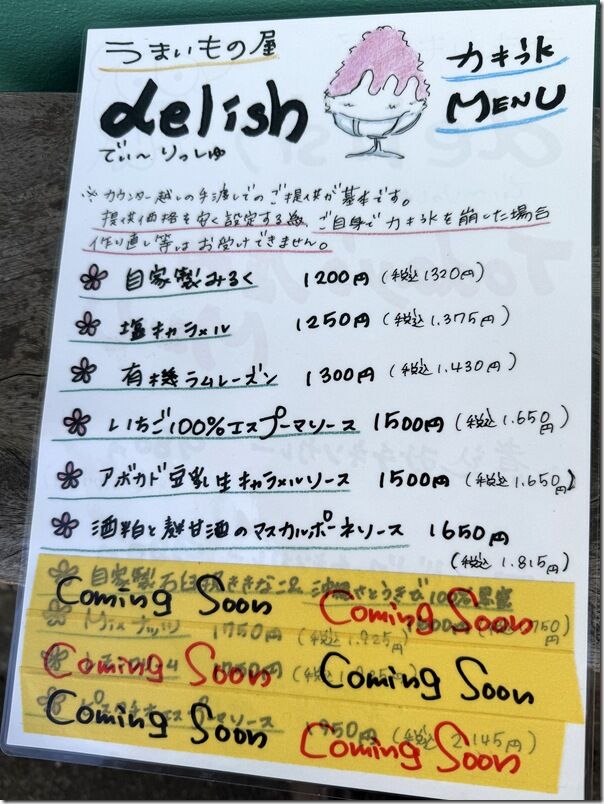 うまいもの屋
delish
でぃ〜りっしゅ
カキ氷
MENU
※カウンター越しの手渡しでのご提供が基本です。
提供価格を安く設定する為、ご自身でカキ氷を崩した場合
作り直し等はお受けできません。
自家製みるく 1200円(税込1320円)
塩キャラメル 1250円(税込1.375円)
有機ラムレーズン 1300円(税込1.430円)
いちご100%エスプーマソース 1500円(税込1.650円)
アボカド豆乳生キャラメルソース 1500円(税込1.650円)
酒粕と麹甘酒のマスカルポーネソース 1650円
(税込1.815円)
Coming Soon Coming Soon
Mixナッツ 1750円(税込1.925円)
Coming Soon Coming Soon
Coming Soon Coming Soon
1950円(税込2.145円)